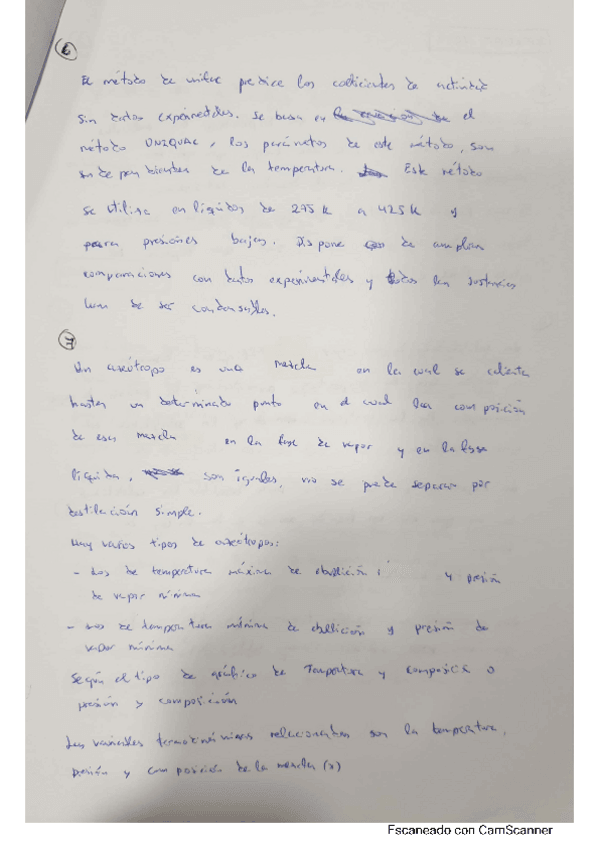 6
El método de unifac predice los coeficientes de actividad
sin datos experimentales. Se basa en el
método UNIQUAC, los parámetros de este método, son
independientes de la temperatura. Este método
se utiliza en líquidos de 275 K a 425 K y
para presiones bajas. Dispone de amplias
comparaciones con datos experimentales y todas las sustancias
han de ser condensables.
7
Un azeótropo es una mezcla en la cual se calienta
hasta un determinado punto en el cual las composición
de esas mezcla en la fase de vapor y en la fase
líquida, son iguales, no se puede separar por
destilación simple.
Hay varios tipos de azeótropos:
- Los de temperatura máxima de ebullición y presión
de vapor mínima
- Los de temperatura mínima de ebullición y presión de
vapor mínima
Según el tipo de gráfico de Temperatura y composición o
presión y composición
Las variables termodinámicas relacionantes son la temperatura,
presión y composición de la mezcla (x)
Escaneado con CamScanner